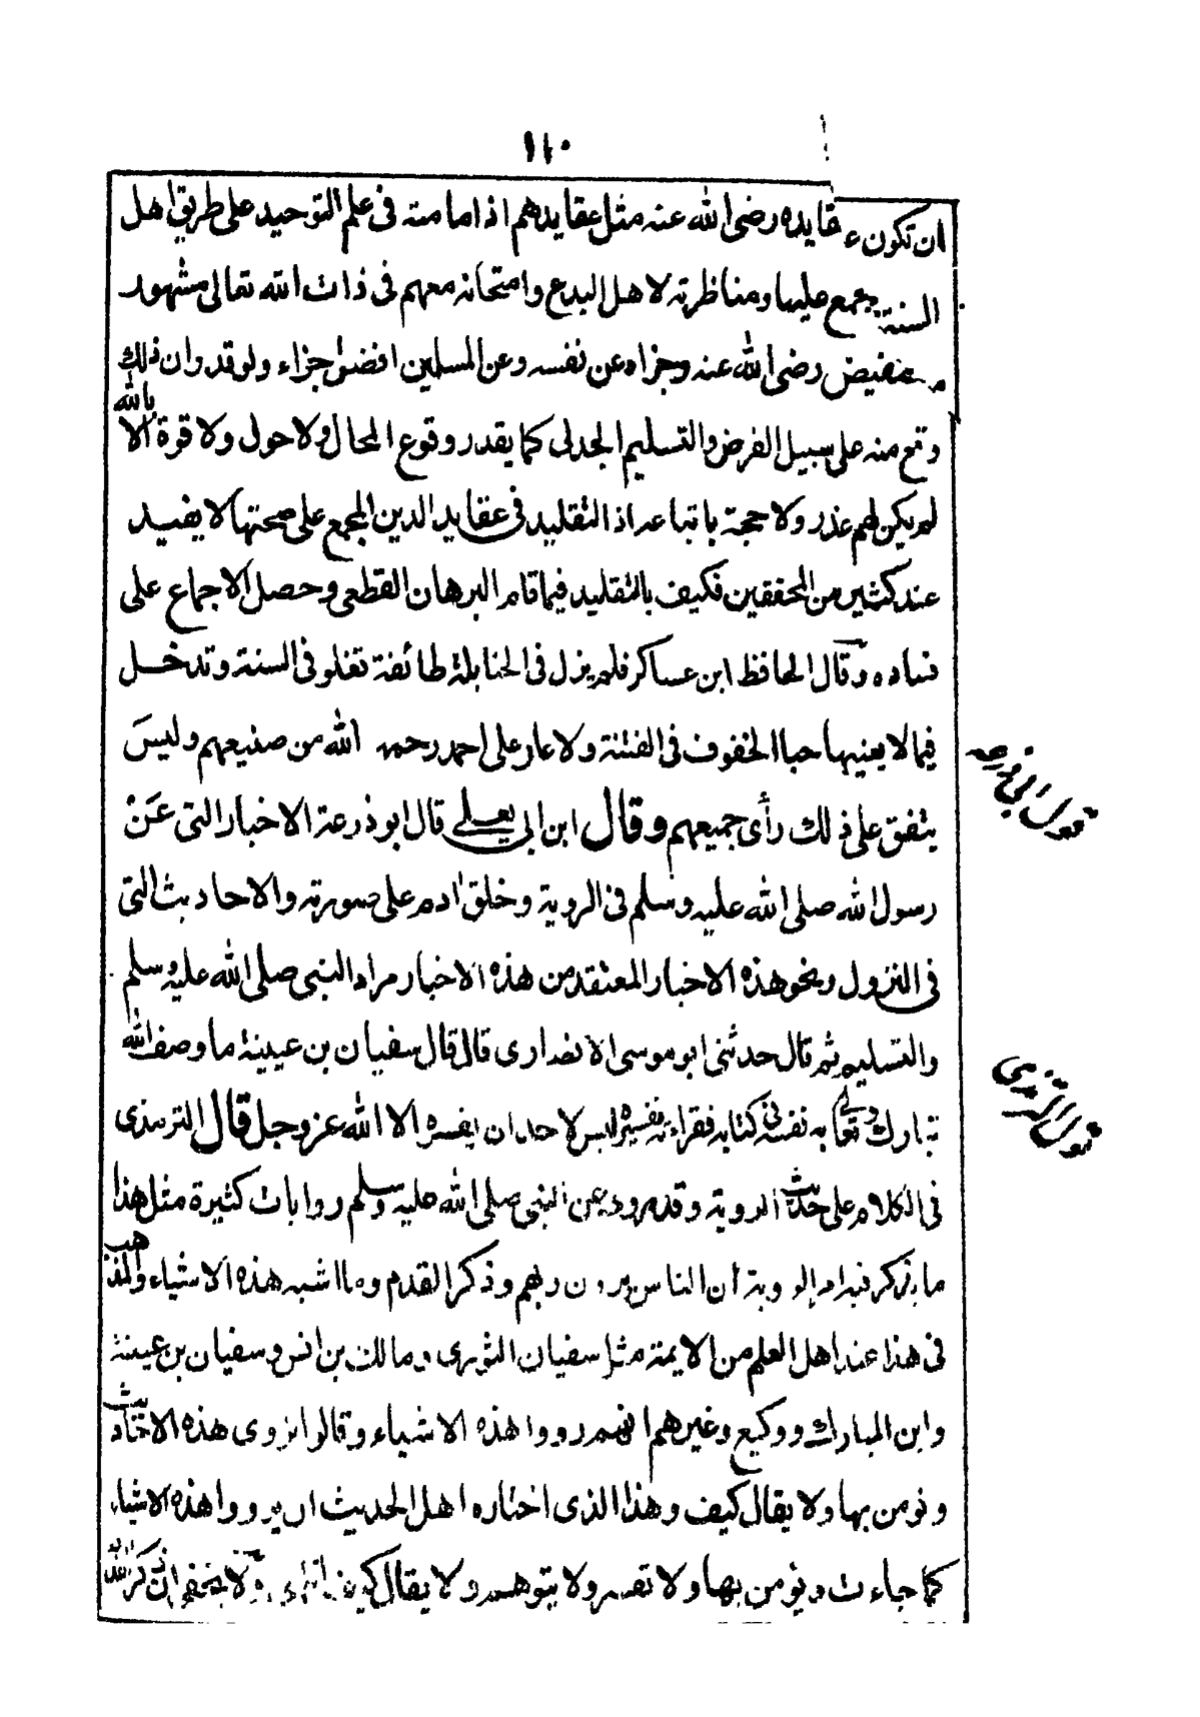 ١١٠
ان تكون عقايده رضى الله عنه مثل عقايدهم اذ امامته فى علم التوحيد على طريق اهل
السنة مجمع عليها ومناظرته لاهل البدع وامتحانه معهم فى ذات الله تعالى مشهور
مستفيض رضى الله عنه وجزاه عن نفسه وعن المسلمين افضل جزاء ولو قدر ان ذلك
وقع منه على سبيل الفرض والتسليم الجدلى كما يقدر وقوع المحال ولا حول ولا قوة الا بالله
لم يكن لهم عذر ولا حجة باتباعه اذ التقليد فى عقايد الدين المجمع على صحتها لا يفيد
عند كثير من المحققين فكيف بالتقليد فيما قام البرهان القطعى وحصل الاجماع على
فساده وقال الحافظ ابن عساكر فلم يزل فى الحنابلة طائفة تغلو فى السنة وتدخل
فيما لا يعنيها حبا الخفوف فى الفتنة ولا عار على احمد رحمه الله من صنيعهم وليس
يتفق على ذلك رأى جميعهم وقال ابن ابى يعلى قال ابو ذرعة الاخبار التى عن
رسول الله صلى الله عليه وسلم فى الروية وخلق ادم على صورته والاحاديث التى
فى النزول ونحو هذه الاخبار المعتقد من هذه الاخبار مراد النبى صلى الله عليه وسلم
والتسليم ثم قال حدثنى ابو موسى الانصارى قال قال سفيان بن عيينة ما وصف الله
تبارك وتعالى به نفسه فى كتابه فقراءته تفسيره ليس لاحد ان يفسره الا الله عز وجل قال الترمذى
فى الكلام على حديث الروية وقد روى عن النبى صلى الله عليه وسلم روايات كثيرة مثل هذا
ما يذكر فيه امر الروية أن الناس يرون ربهم وذكر القدم وما اشبه هذه الاشياء والمذهب
فى هذا عند اهل العلم من الايمة مثل سفيان الثورى ومالك بن انس وسفيان بن عيينة
وابن المبارك ووكيع وغيرهم انهم رووا هذه الاشياء وقالوا نروى هذه الاحاديث
ونومن بها ولا يقال كيف وهذا الذى اختاره اهل الحديث ان يرووا هذه الاشياء
كما جاءت ويؤمن بها ولا تفسر ولا يتوهم ولا يقال كيف ولا يخفى ان
قول ابى ذرعه
قول الترمذى